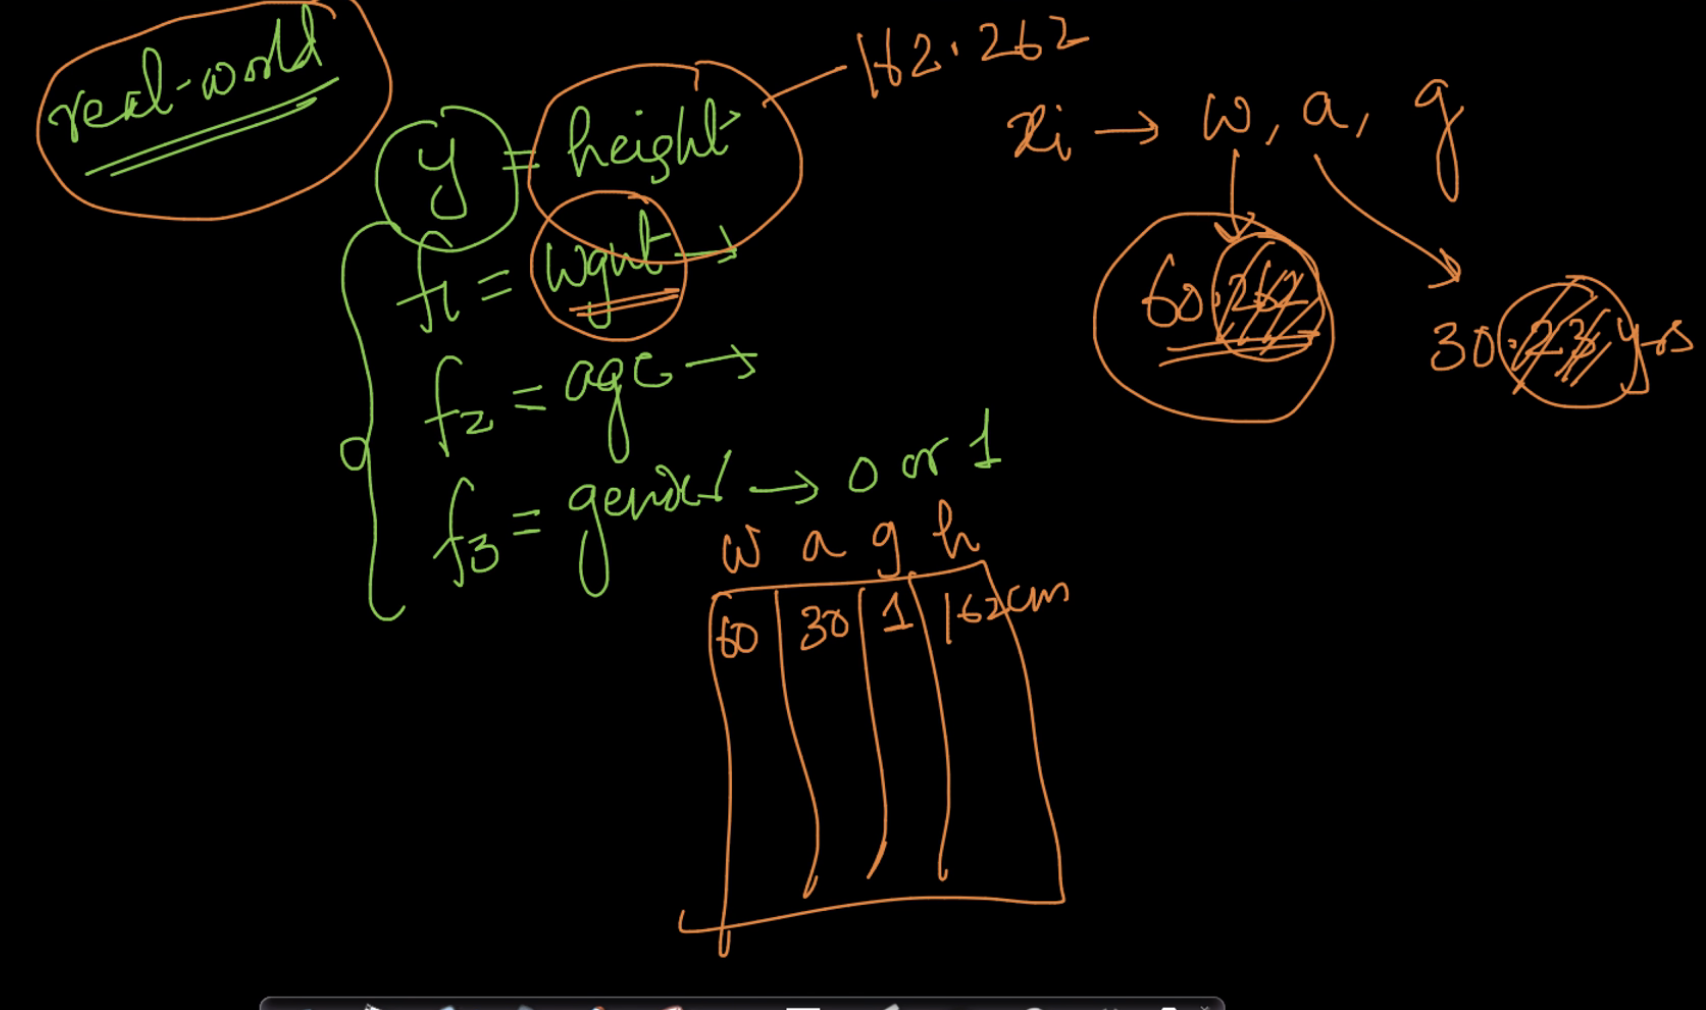 real-world
y = height → 162.262
f1 = wght →
f2 = age →
f3 = gender → 0 or 1
xi → w, a, g
60.262
30.23 yrs
w a g h
60 30 1 162cm